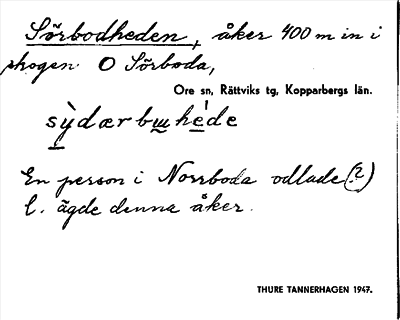 Sörbodheden, åker 400 m in i
skogen O Sörboda,
Ore sn, Rättviks tg, Kopparbergs län.
sỳdærbɯhéde
En person i Norrboda odlade (?)
l. ägde denna åker.
THURE TANNERHAGEN 1947.